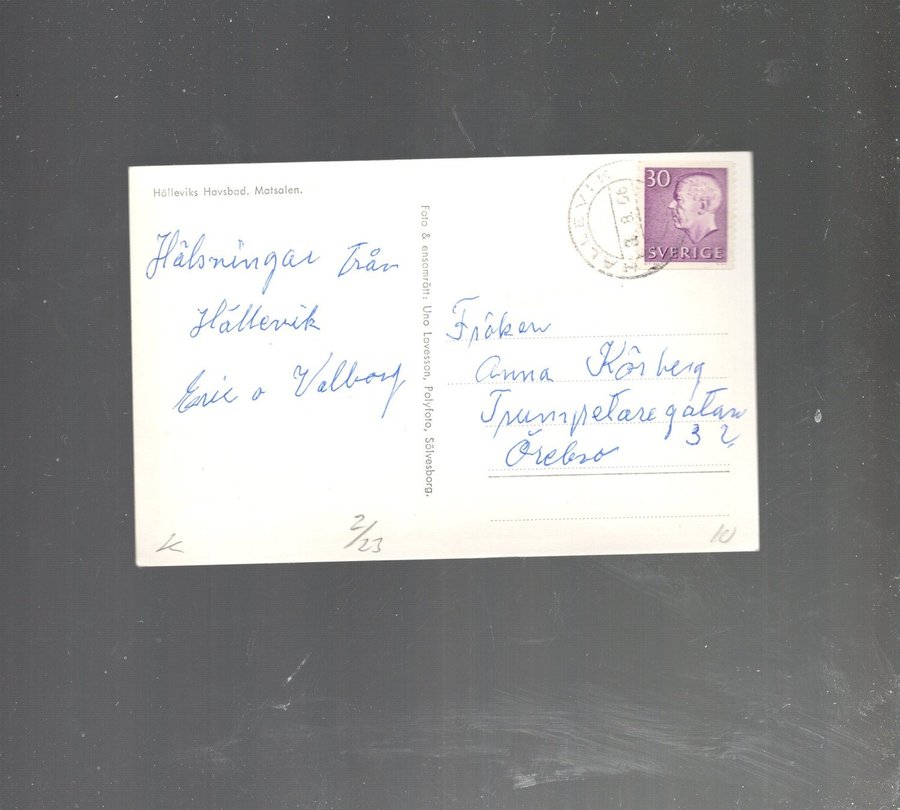 Hälleviks Havsbad. Matsalen.
Hälsningar från
Hällevik
Eric o Valborg
Foto & ensamrätt: Uno Lavesson, Polyfoto, Sölvesborg.
HÄLLEVIK
3.8.66
30
SVERIGE
Fröken
Anna Körberg
Trumpetaregatan
32
Örebro
K
2/23